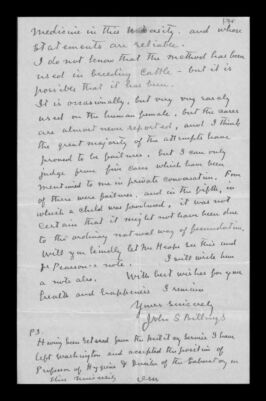 Medicine in this University. and whose
statements are reliable.
I do not know that the method has been
used in breeding Cattle - but it is
possible that it has been.
It is occasionally, but very very rarely
used on the human female. but the cases
are almost never reported, and I think
the great majority of the attempts have
proved to be failures. but I can only
judge from five cases which have been
mentioned to me in private conversation. Four
of these were failures. and in the fifth, in
which a child was produced, it was not
certain that it might not have been due
to the ordinary natural way of fecundation
Will you kindly let Mr Heape see this and
Dr Pearson's note. I will write him
a note also. With best wishes for your
health and happiness I remain
Yours sincerely
John S Billings
P.S.
Having been retired from the Military Service I have
left Washington and accepted the position of
Professor of Hygiene & Director of the Laboratory in
this University